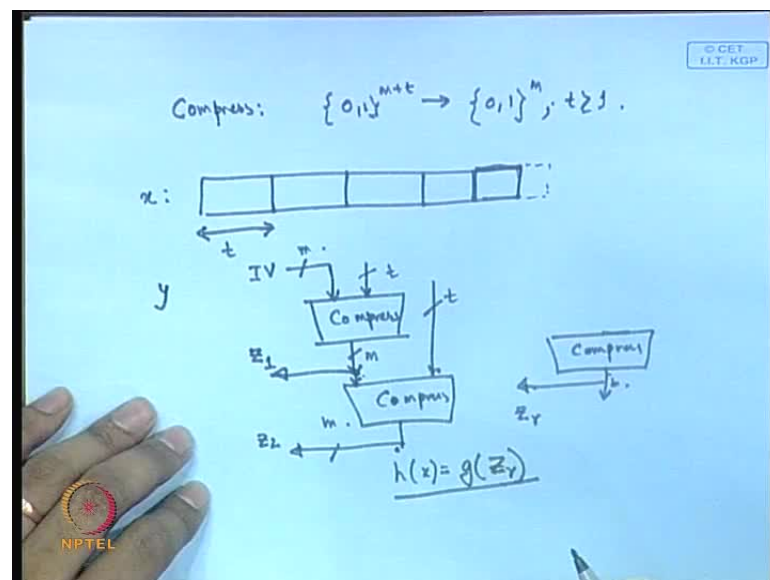 © CET
I.I.T. KGP
Compress: {0,1}^{m+t} → {0,1}^m, t ≥ 1.
x:
t
IV m.
t
t
y
Compress
Compress
Z_1
m
Compress
m.
Z_r
Z_2
h(x) = g(Z_r)
NPTEL